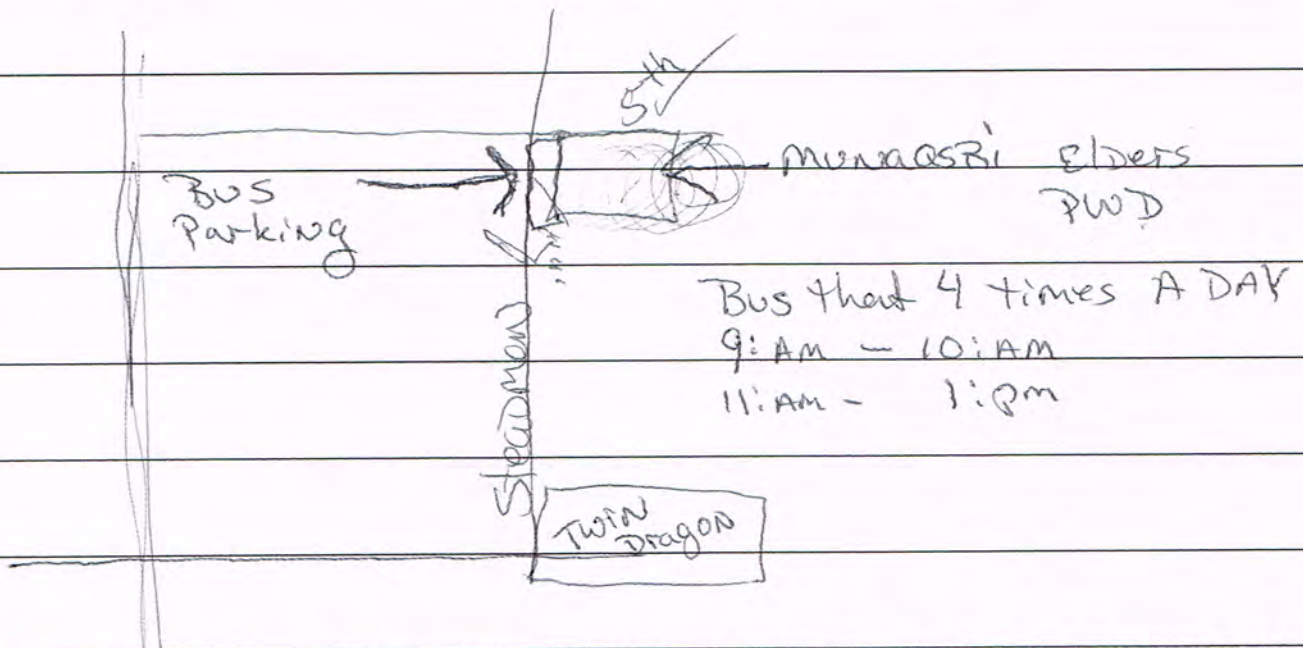 5th
Bus
Parking
Munaqsri Elders
PWD
Bus that 4 times A DAY
9: AM - 10: AM
11: AM - 1: pm
Steadman
Twin
Dragon